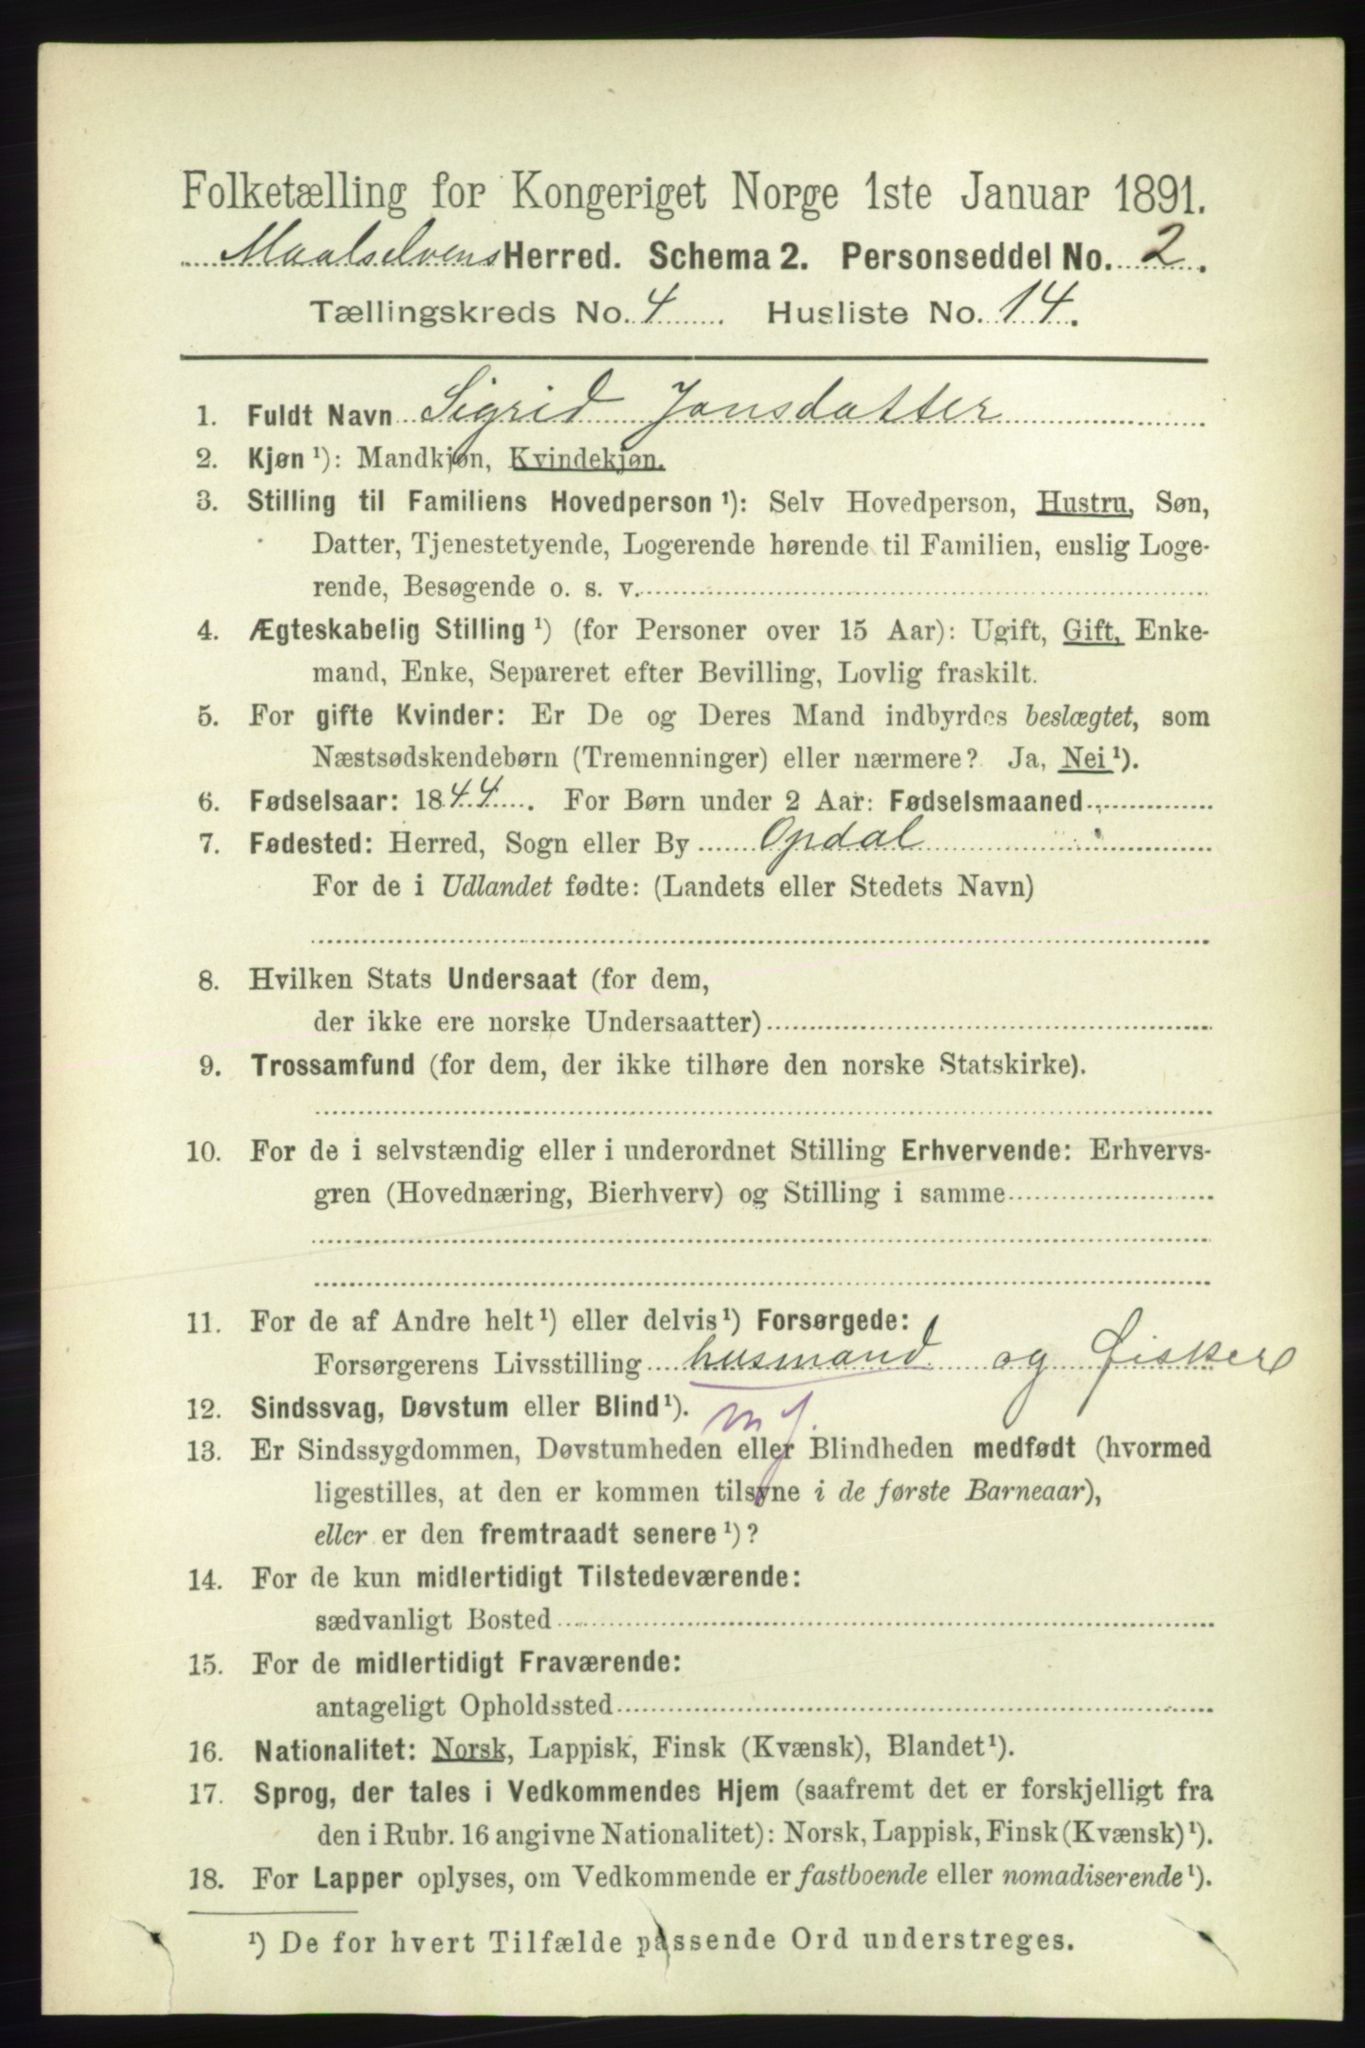 Folketælling for Kongeriget Norge 1ste Januar 1891.
Maalselvens Herred. Schema 2. Personseddel No. 2.
Tællingskreds No. 4 Husliste No. 14.
1. Fuldt Navn Sigrid Jonsdatter
2. Kjøn¹): Mandkjøn, Kvindekjøn.
3. Stilling til Familiens Hovedperson¹): Selv Hovedperson, Hustru, Søn,
Datter, Tjenestetyende, Logerende hørende til Familien, enslig Loge-
rende, Besøgende o. s. v.
4. Ægteskabelig Stilling¹) (for Personer over 15 Aar): Ugift, Gift, Enke-
mand, Enke, Separeret efter Bevilling, Lovlig fraskilt.
5. For gifte Kvinder: Er De og Deres Mand indbyrdes beslægtet, som
Næstsødskendebørn (Tremenninger) eller nærmere? Ja, Nei¹).
6. Fødselsaar: 1844. For Børn under 2 Aar: Fødselsmaaned
7. Fødested: Herred, Sogn eller By Opdal
For de i Udlandet fødte: (Landets eller Stedets Navn)
8. Hvilken Stats Undersaat (for dem,
der ikke ere norske Undersaatter)
9. Trossamfund (for dem, der ikke tilhøre den norske Statskirke).
10. For de i selvstændig eller i underordnet Stilling Erhvervende: Erhvervs-
gren (Hovednæring, Bierhverv) og Stilling i samme
11. For de af Andre helt¹) eller delvis¹) Forsørgede:
Forsørgerens Livsstilling husmand og Fisker
12. Sindssvag, Døvstum eller Blind¹). m j.
13. Er Sindssygdommen, Døvstumheden eller Blindheden medfødt (hvormed
ligestilles, at den er kommen tilsyne i de første Barneaar),
eller er den fremtraadt senere¹)?
14. For de kun midlertidigt Tilstedeværende:
sædvanligt Bosted
15. For de midlertidigt Fraværende:
antageligt Opholdssted
16. Nationalitet: Norsk, Lappisk, Finsk (Kvænsk), Blandet¹).
17. Sprog, der tales i Vedkommendes Hjem (saafremt det er forskjelligt fra
den i Rubr. 16 angivne Nationalitet): Norsk, Lappisk, Finsk (Kvænsk)¹).
18. For Lapper oplyses, om Vedkommende er fastboende eller nomadiserende¹).
¹) De for hvert Tilfælde passende Ord understreges.